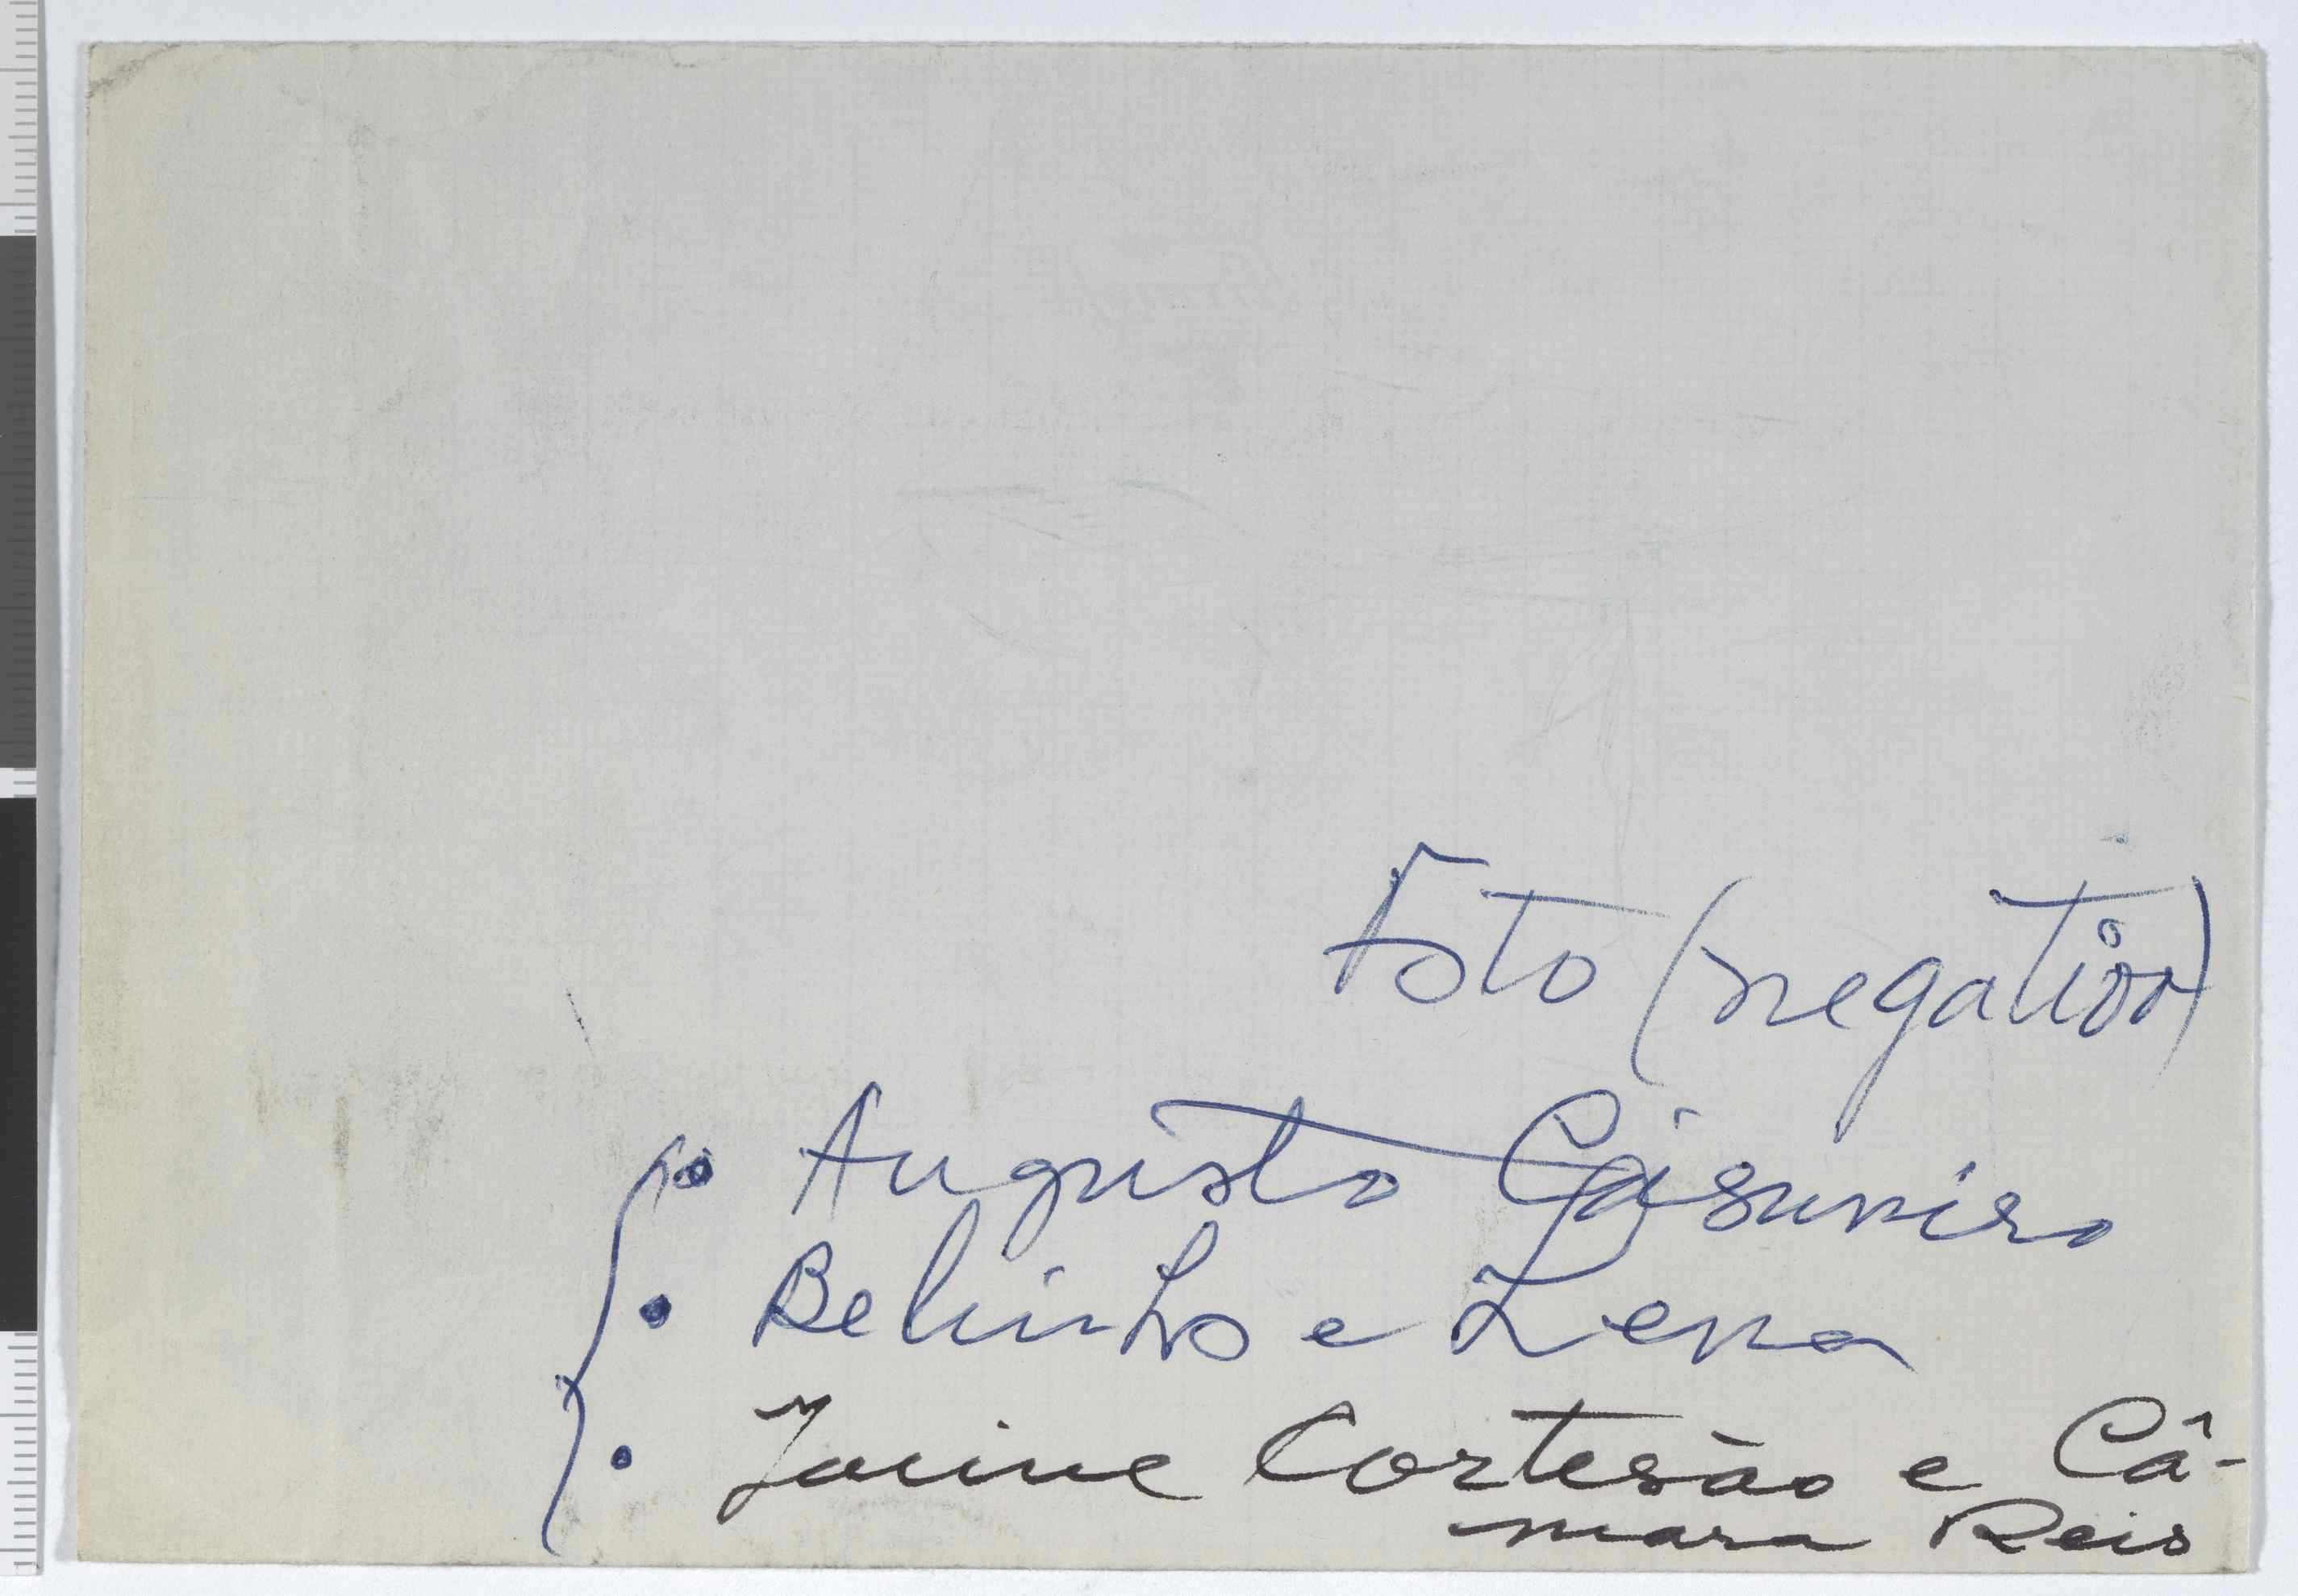 Foto (negativo)
• Augusto Casimiro
• Belinho e Lena
• Jaime Cortesão e Câ-
mara Reis